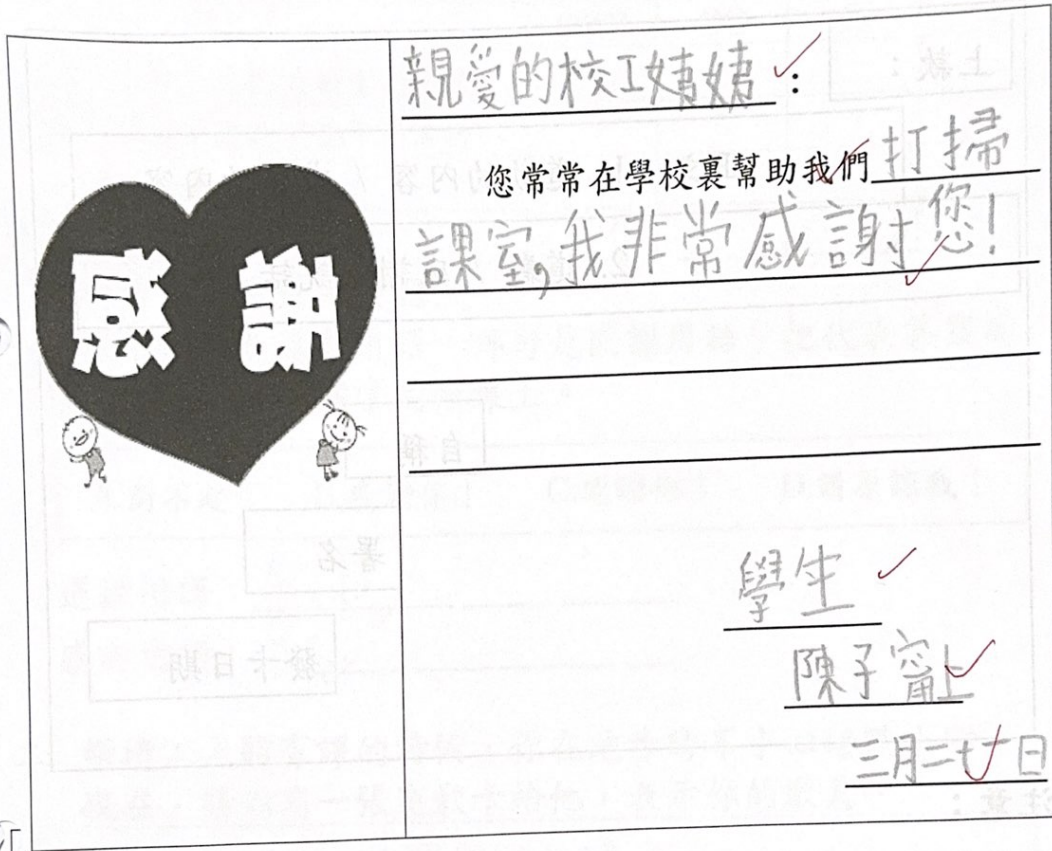 感謝
親愛的校工姨姨：
您常常在學校裏幫助我們打掃
課室，我非常感謝您！
學生
陳子甯上
三月二十日